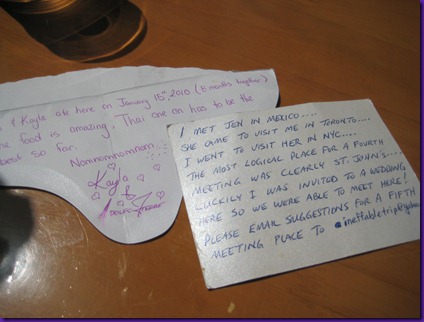 & Kayle ate here on January 15th, 2010 (8 months together)
he food is amazing. Thai one on has to be the
best so far.
Nomnomnomnom
Kayla
&
I MET JEN IN MEXICO....
SHE CAME TO VISIT ME IN TORONTO....
I WENT TO VISIT HER IN NYC....
THE MOST LOGICAL PLACE FOR A FOURTH
MEETING WAS CLEARLY ST. JOHN'S....
LUCKILY I WAS INVITED TO A WEDDING
HERE SO WE WERE ABLE TO MEET HERE!
PLEASE EMAIL SUGGESTIONS FOR A FIFTH
MEETING PLACE TO